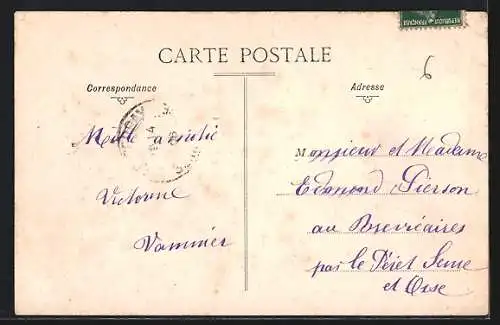 CARTE POSTALE
Correspondance
Adresse
6
Monsieur et Madame
Edmond Pierson
au
par le Séret Seine
et Oise
Mille amitié
Victorine
Vannier